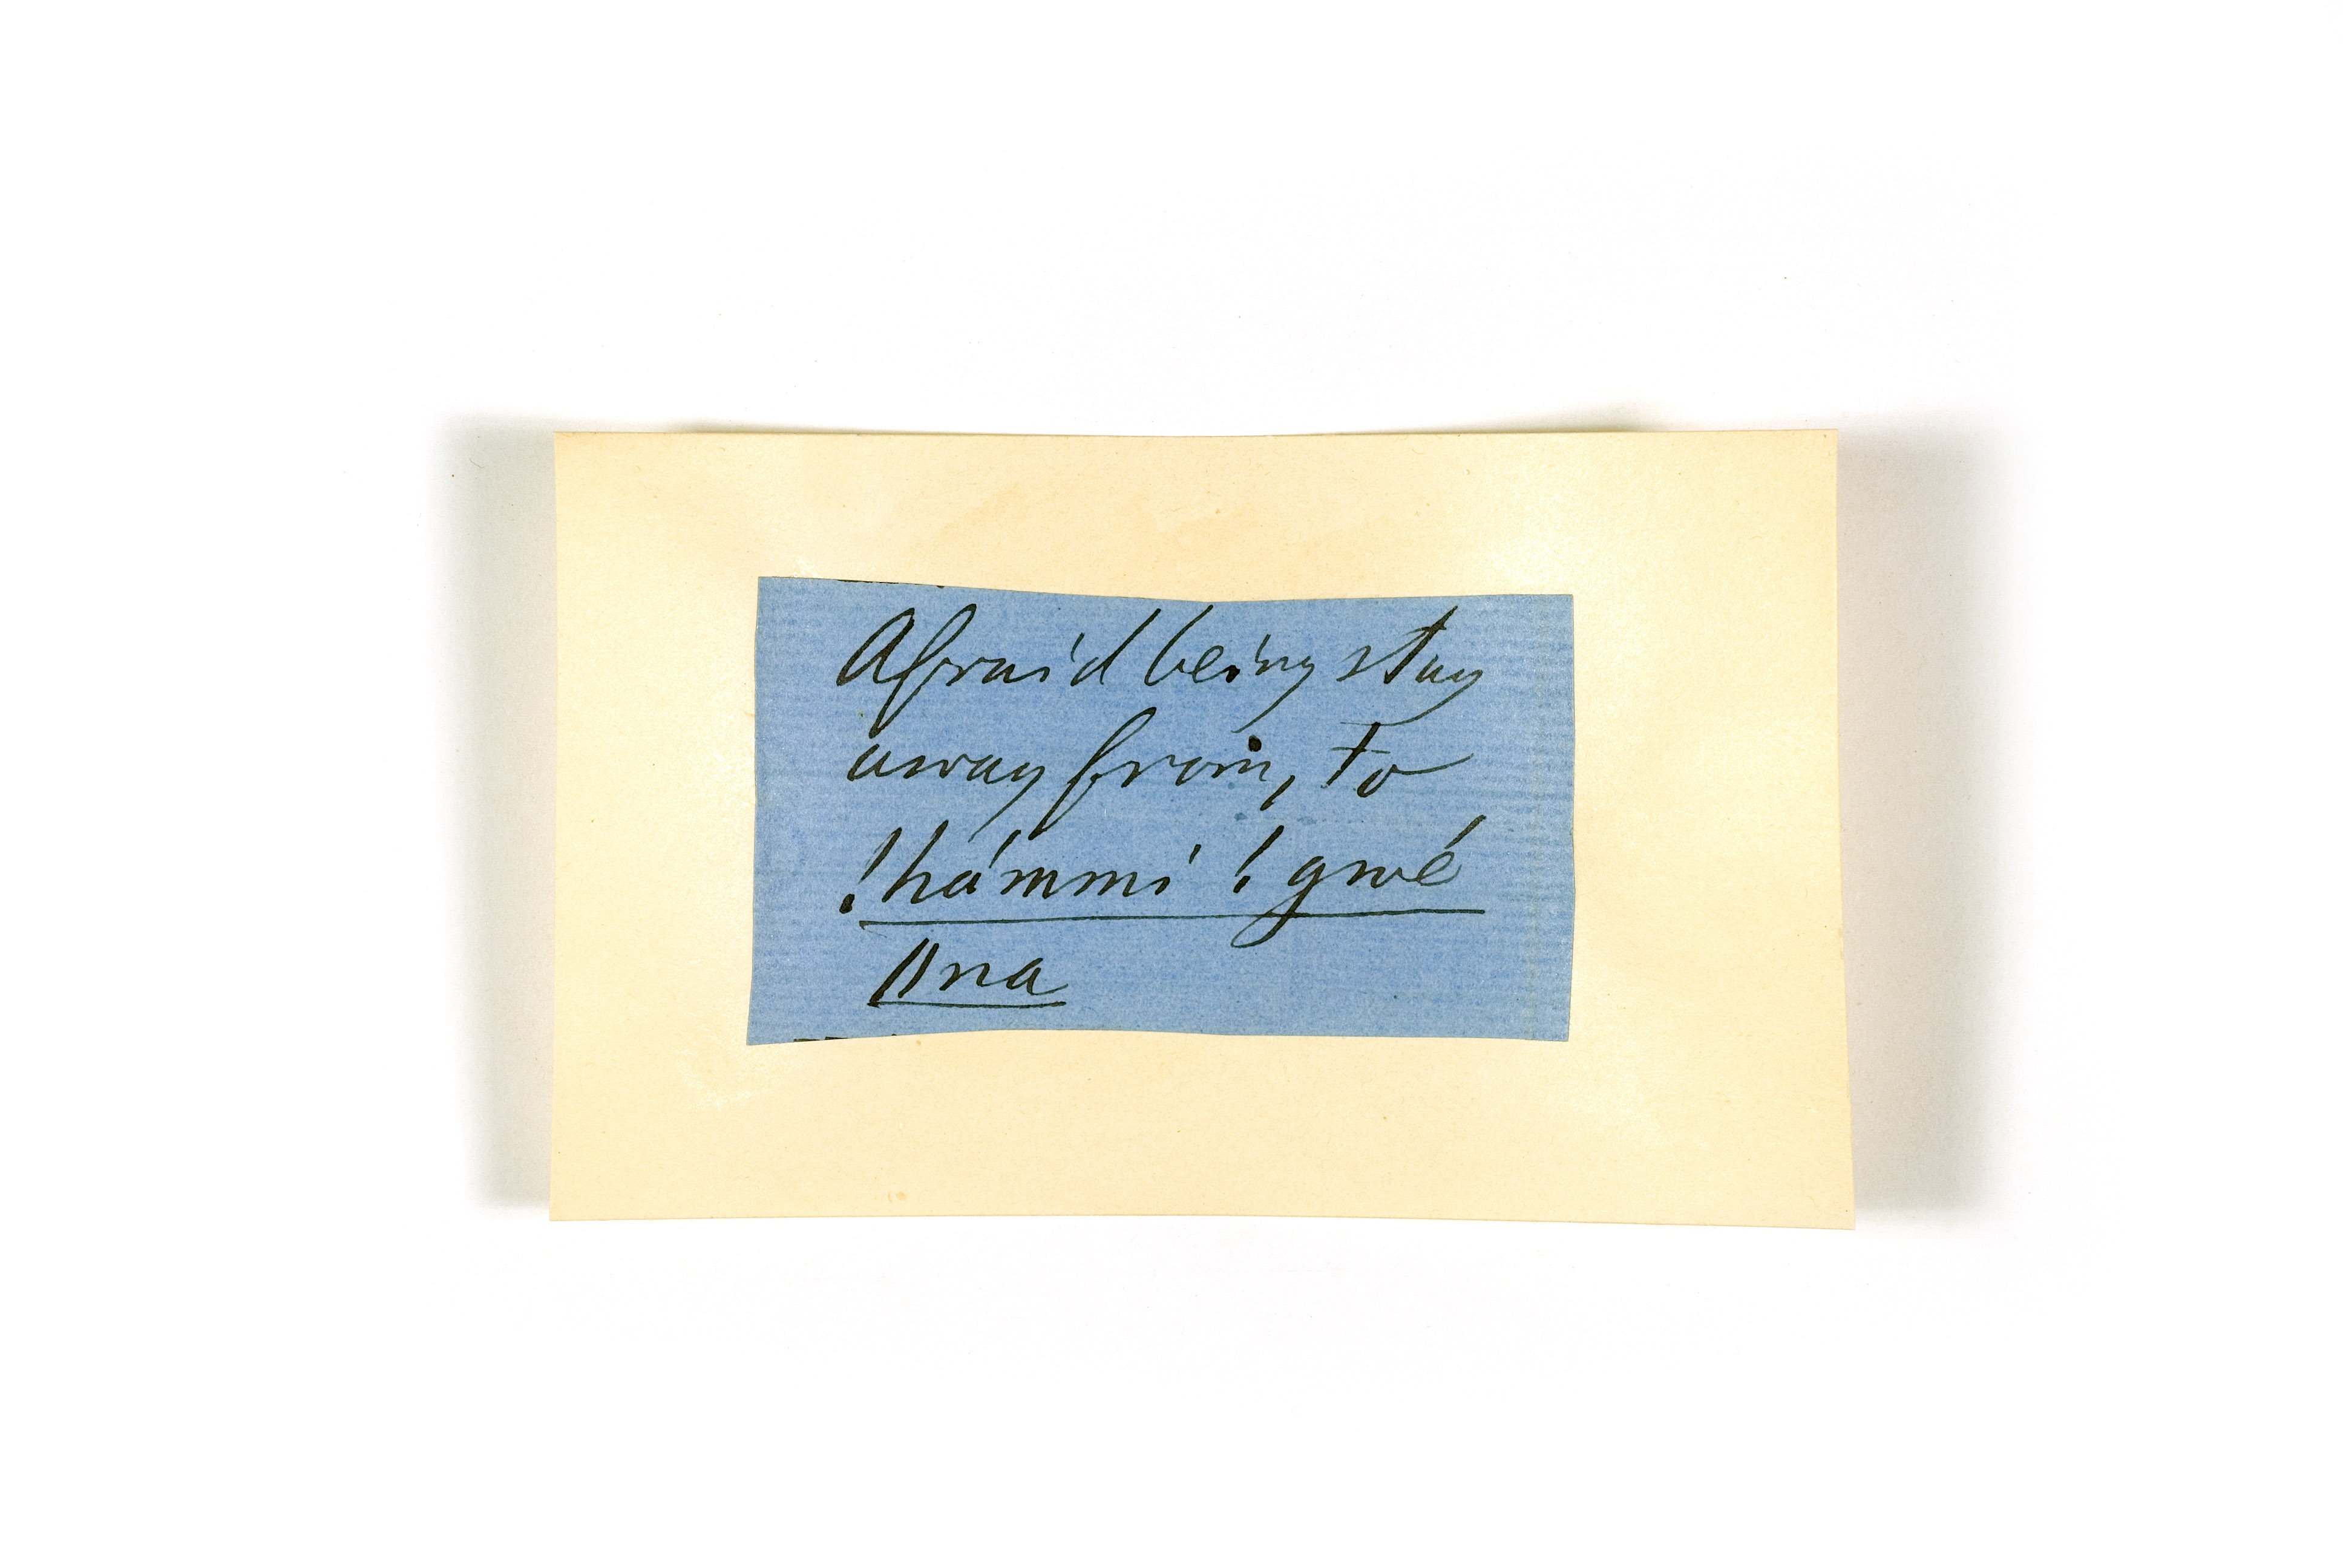 Afraid being stay
away from, to
!hámmi !gwé
ǁna